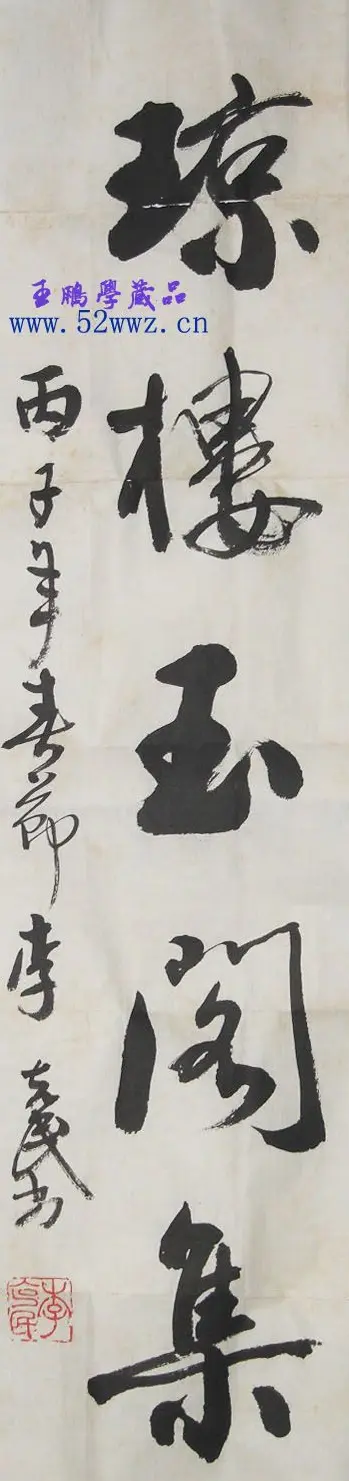 琼樓玉閣集
王鵬學藏品
www.52wwz.cn
丙子年春節李